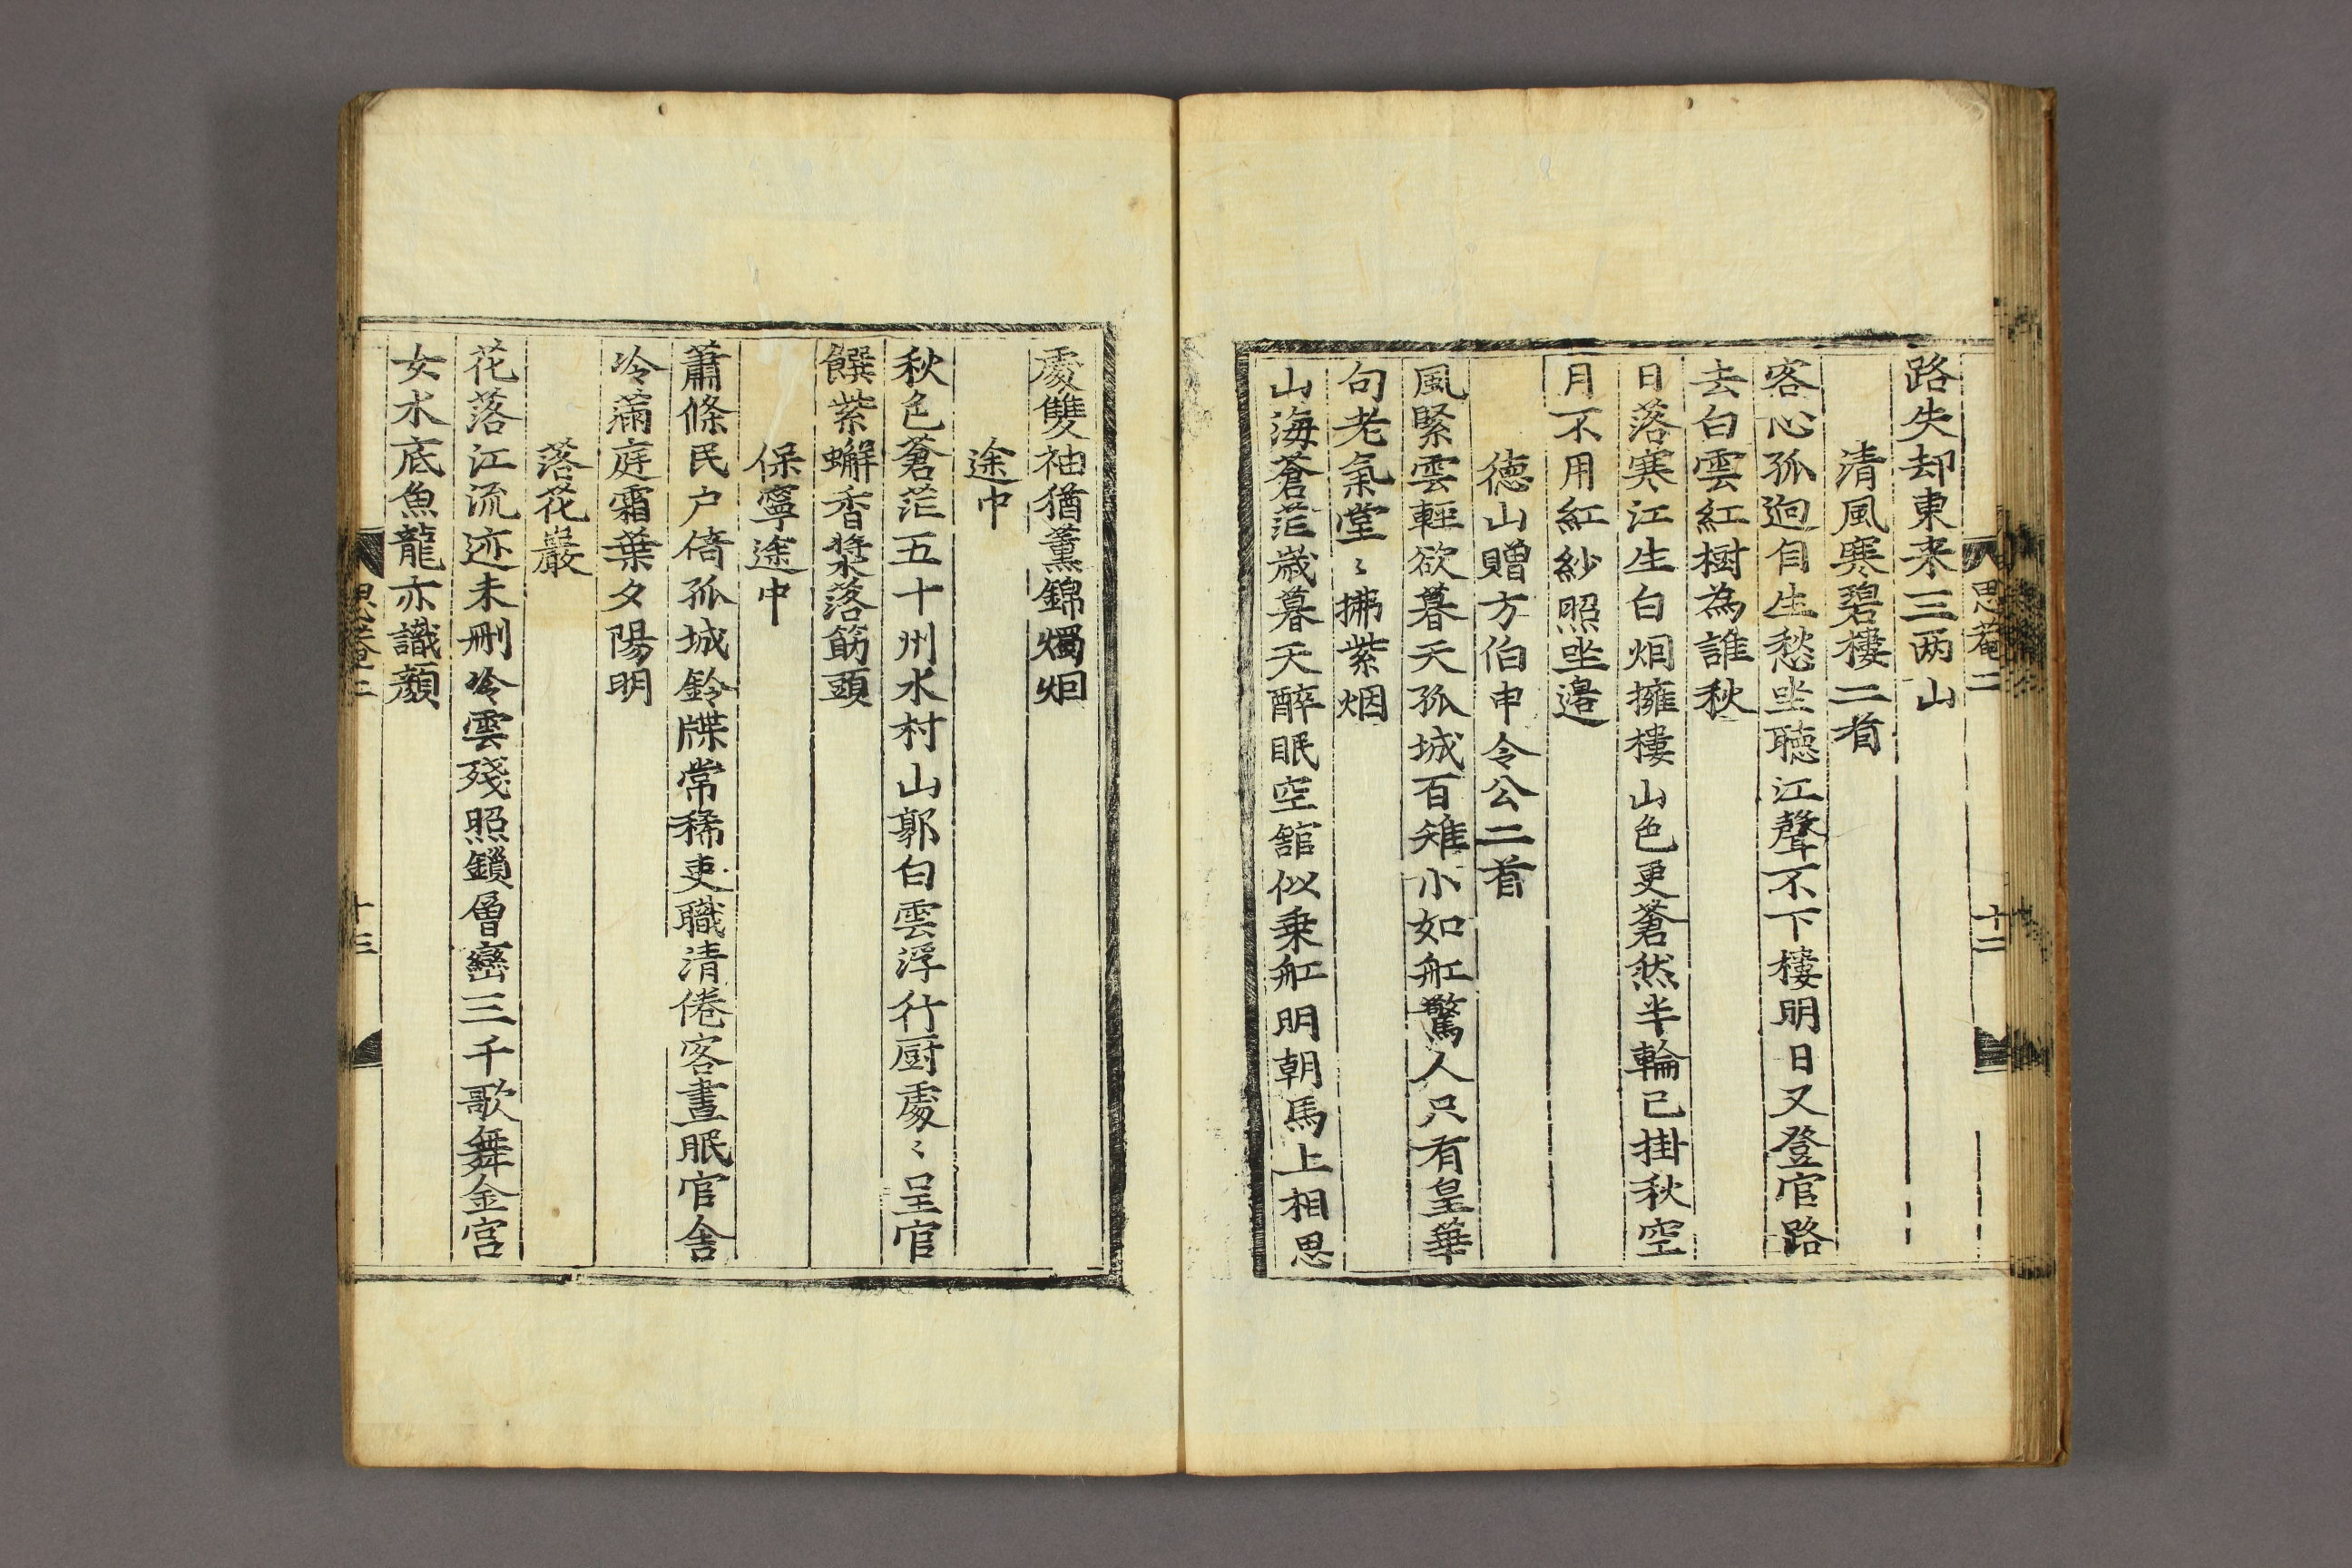 思菴二 十二
路失却東来三两山
清風寒碧樓二首
客心孤逈自生愁坐聴江聲不下樓明日又登官路
去白雲紅樹為誰秋
日落寒江生白烟擁樓山色更蒼然半輪已掛秋空
月不用紅紗照坐邉
德山贈方伯申令公二首
風緊雲輕欲暮天孤城百雉小如舡驚人只有皇華
句老氣堂〻拂紫烟
山海蒼茫歳暮天醉眠空舘似乗舡明朝馬上相思
處雙袖猶薰錦燭烟
途中
秋色蒼茫五十州水村山郭白雲浮行厨處〻呈官
饌紫蠏香漿落筯頭
保寧途中
蕭條民户倚孤城鈴牒常稀吏職清倦客晝眠官舎
冷滿庭霜葉夕陽明
落花巖
花落江流迹未刪冷雲殘照鎖層巒三千歌舞金宮
女水底魚龍亦識顔
思菴二 十三